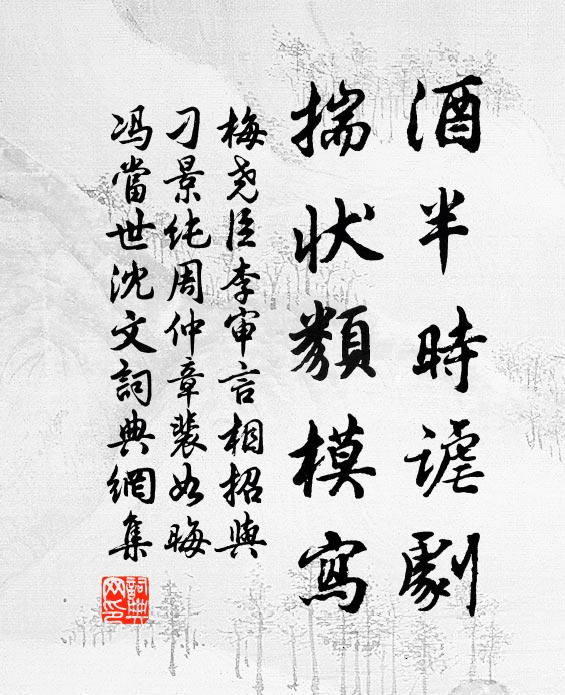 酒半時謔劇
揣状類模寫
梅尧臣李审言相招與
刁景纯周仲章裴如晦
冯當世沈文詞典網集
詞典
网印